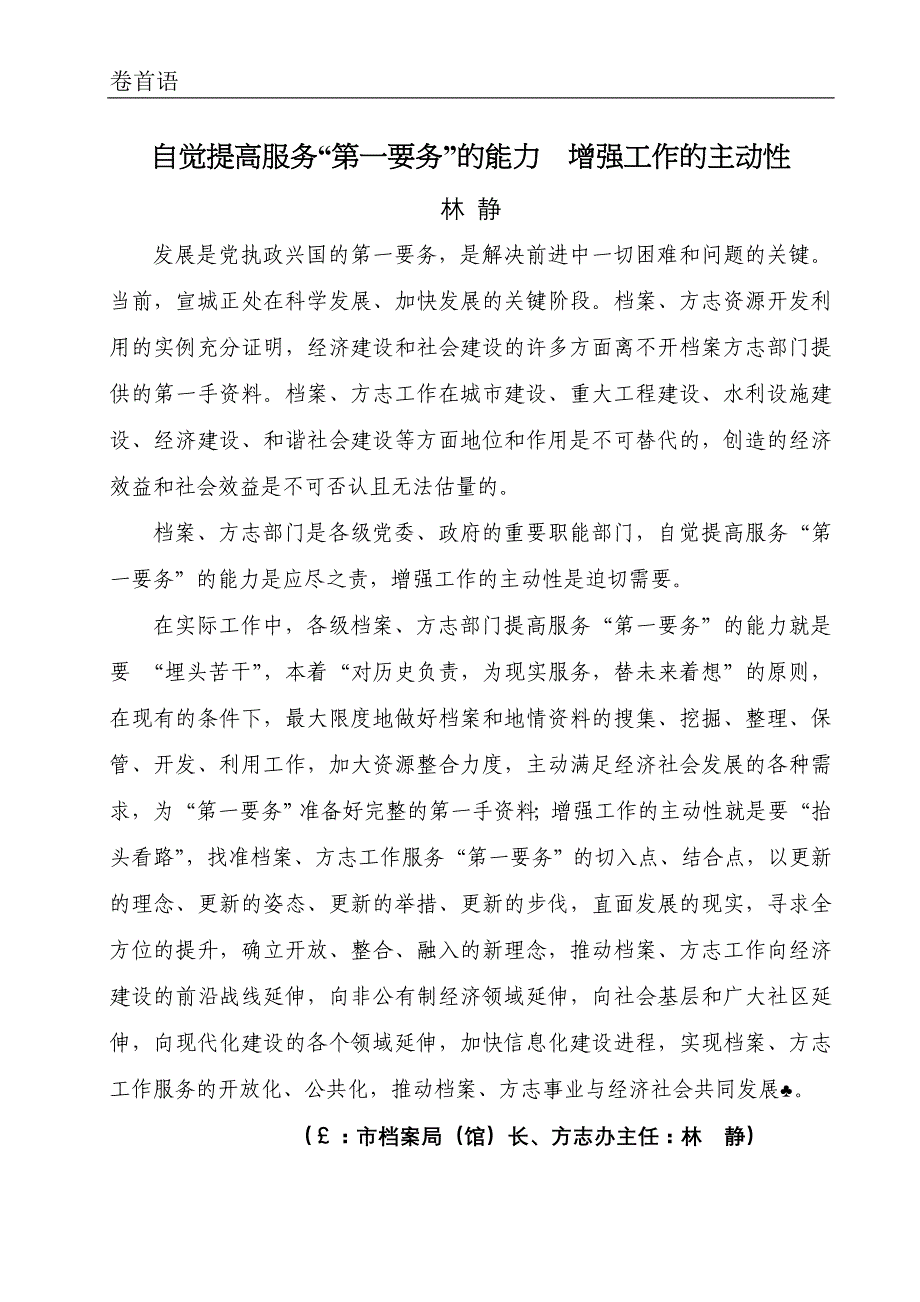 卷首语
自觉提高服务“第一要务”的能力　增强工作的主动性
林 静
发展是党执政兴国的第一要务，是解决前进中一切困难和问题的关键。
当前，宣城正处在科学发展、加快发展的关键阶段。档案、方志资源开发利
用的实例充分证明，经济建设和社会建设的许多方面离不开档案方志部门提
供的第一手资料。档案、方志工作在城市建设、重大工程建设、水利设施建
设、经济建设、和谐社会建设等方面地位和作用是不可替代的，创造的经济
效益和社会效益是不可否认且无法估量的。
档案、方志部门是各级党委、政府的重要职能部门，自觉提高服务“第
一要务”的能力是应尽之责，增强工作的主动性是迫切需要。
在实际工作中，各级档案、方志部门提高服务“第一要务”的能力就是
要 “埋头苦干”，本着“对历史负责，为现实服务，替未来着想”的原则，
在现有的条件下，最大限度地做好档案和地情资料的搜集、挖掘、整理、保
管、开发、利用工作，加大资源整合力度，主动满足经济社会发展的各种需
求，为“第一要务”准备好完整的第一手资料；增强工作的主动性就是要“抬
头看路”，找准档案、方志工作服务“第一要务”的切入点、结合点，以更新
的理念、更新的姿态、更新的举措、更新的步伐，直面发展的现实，寻求全
方位的提升，确立开放、整合、融入的新理念，推动档案、方志工作向经济
建设的前沿战线延伸，向非公有制经济领域延伸，向社会基层和广大社区延
伸，向现代化建设的各个领域延伸，加快信息化建设进程，实现档案、方志
工作服务的开放化、公共化，推动档案、方志事业与经济社会共同发展♣。
（£：市档案局（馆）长、方志办主任：林　静）